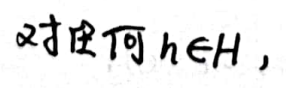 对任何 h∈H,